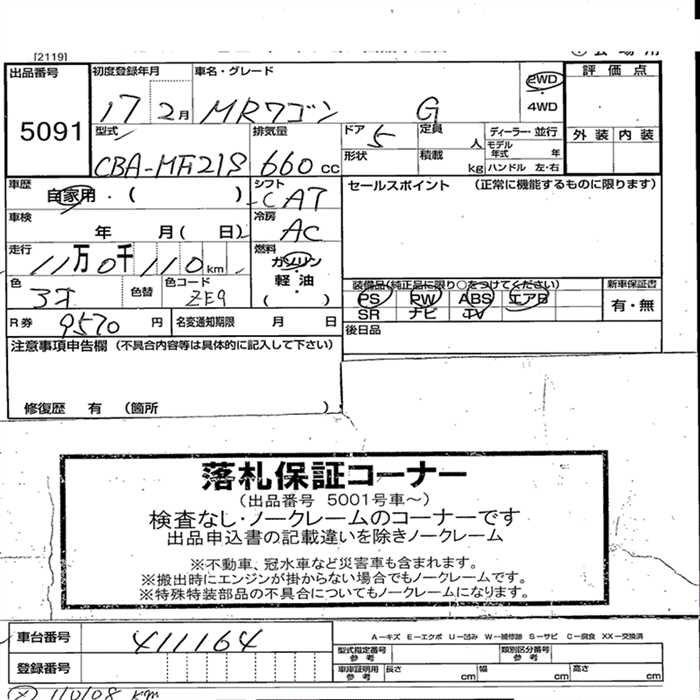 [2119]
出品番号 初度登録年月 車名・グレード 2WD 評価点
5091 17 2月 MRワゴン G 4WD
型式 排気量 ドア 定員 ディーラー・並行 外装 内装
CBA-MF21S 660cc 5 人 モデル年式 年
形状 積載 kg ハンドル 左・右
車歴 自家用・( ) シフト CAT セールスポイント (正常に機能するものに限ります)
車検 年 月( 日) 冷房 AC
走行 11万0千110km 燃料 ガソリン
軽・油
( )
色 色替 色コード ZE9 装備品(純正品に限り○をつけてください) 新車保証書
PS PW ABS エアB 有・無
SR ナビ TV
R券 9570円 名変通知期限 月 日 後日品
注意事項申告欄 (不具合内容等は具体的に記入して下さい)
修復歴 有 (箇所 )
落札保証コーナー
(出品番号 5001号車~)
検査なし・ノークレームのコーナーです
出品申込書の記載違いを除きノークレーム
※不動車、冠水車など災害車も含まれます。
※搬出時にエンジンが掛からない場合でもノークレームです。
※特殊特装部品の不具合についてもノークレームになります。
車台番号 411164 A-キズ E-エクボ U-凹み W-補修跡 S-サビ C-腐食 XX-交換済
型式指定番号 参考 類別区分番号 参考
登録番号 車庫証明用 参考 長さ cm 幅 cm 高さ cm
110108 km